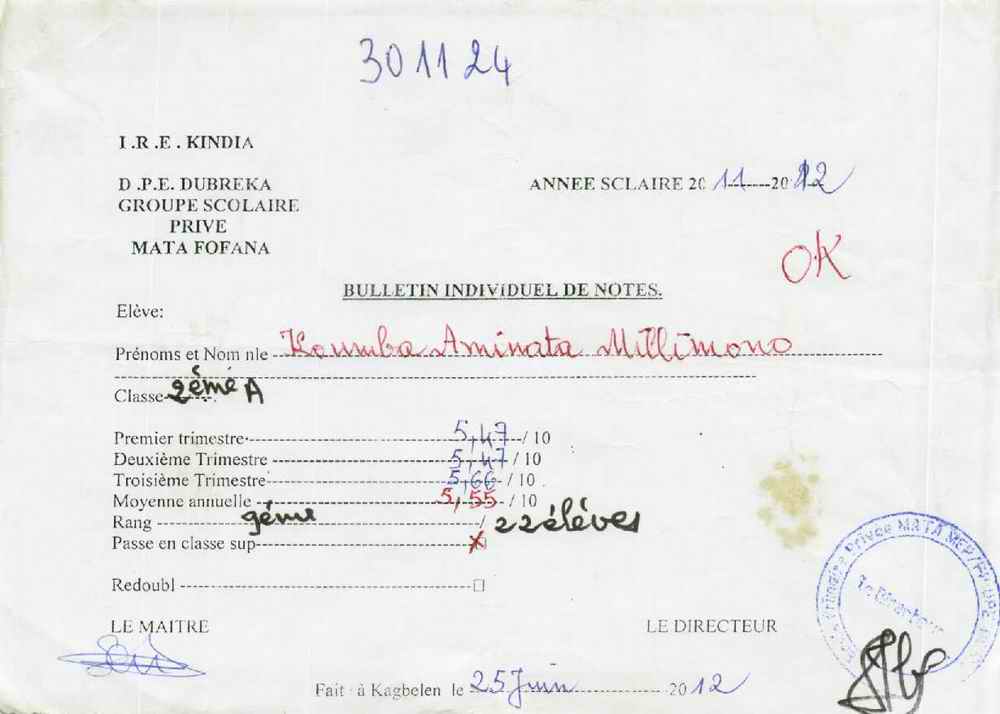 301124
I .R .E . KINDIA
D .P.E. DUBREKA
ANNEE SCLAIRE 20 11-------20 12
GROUPE SCOLAIRE
PRIVE
MATA FOFANA
OK
BULLETIN INDIVIDUEL DE NOTES.
Elève:
Prénoms et Nom nle Koumba Aminata Millimono
Classe 2émé A
Premier trimestre 5,47 / 10
Deuxième Trimestre 5,47 / 10
Troisième Trimestre 5,66 / 10
Moyenne annuelle 5,55 / 10
Rang 9éme / 22 élévés
Passe en classe sup
Redoubl
LE MAITRE
LE DIRECTEUR
Privée MATA
Le Directeur
Fait à Kagbelen le 25 Juin 2012